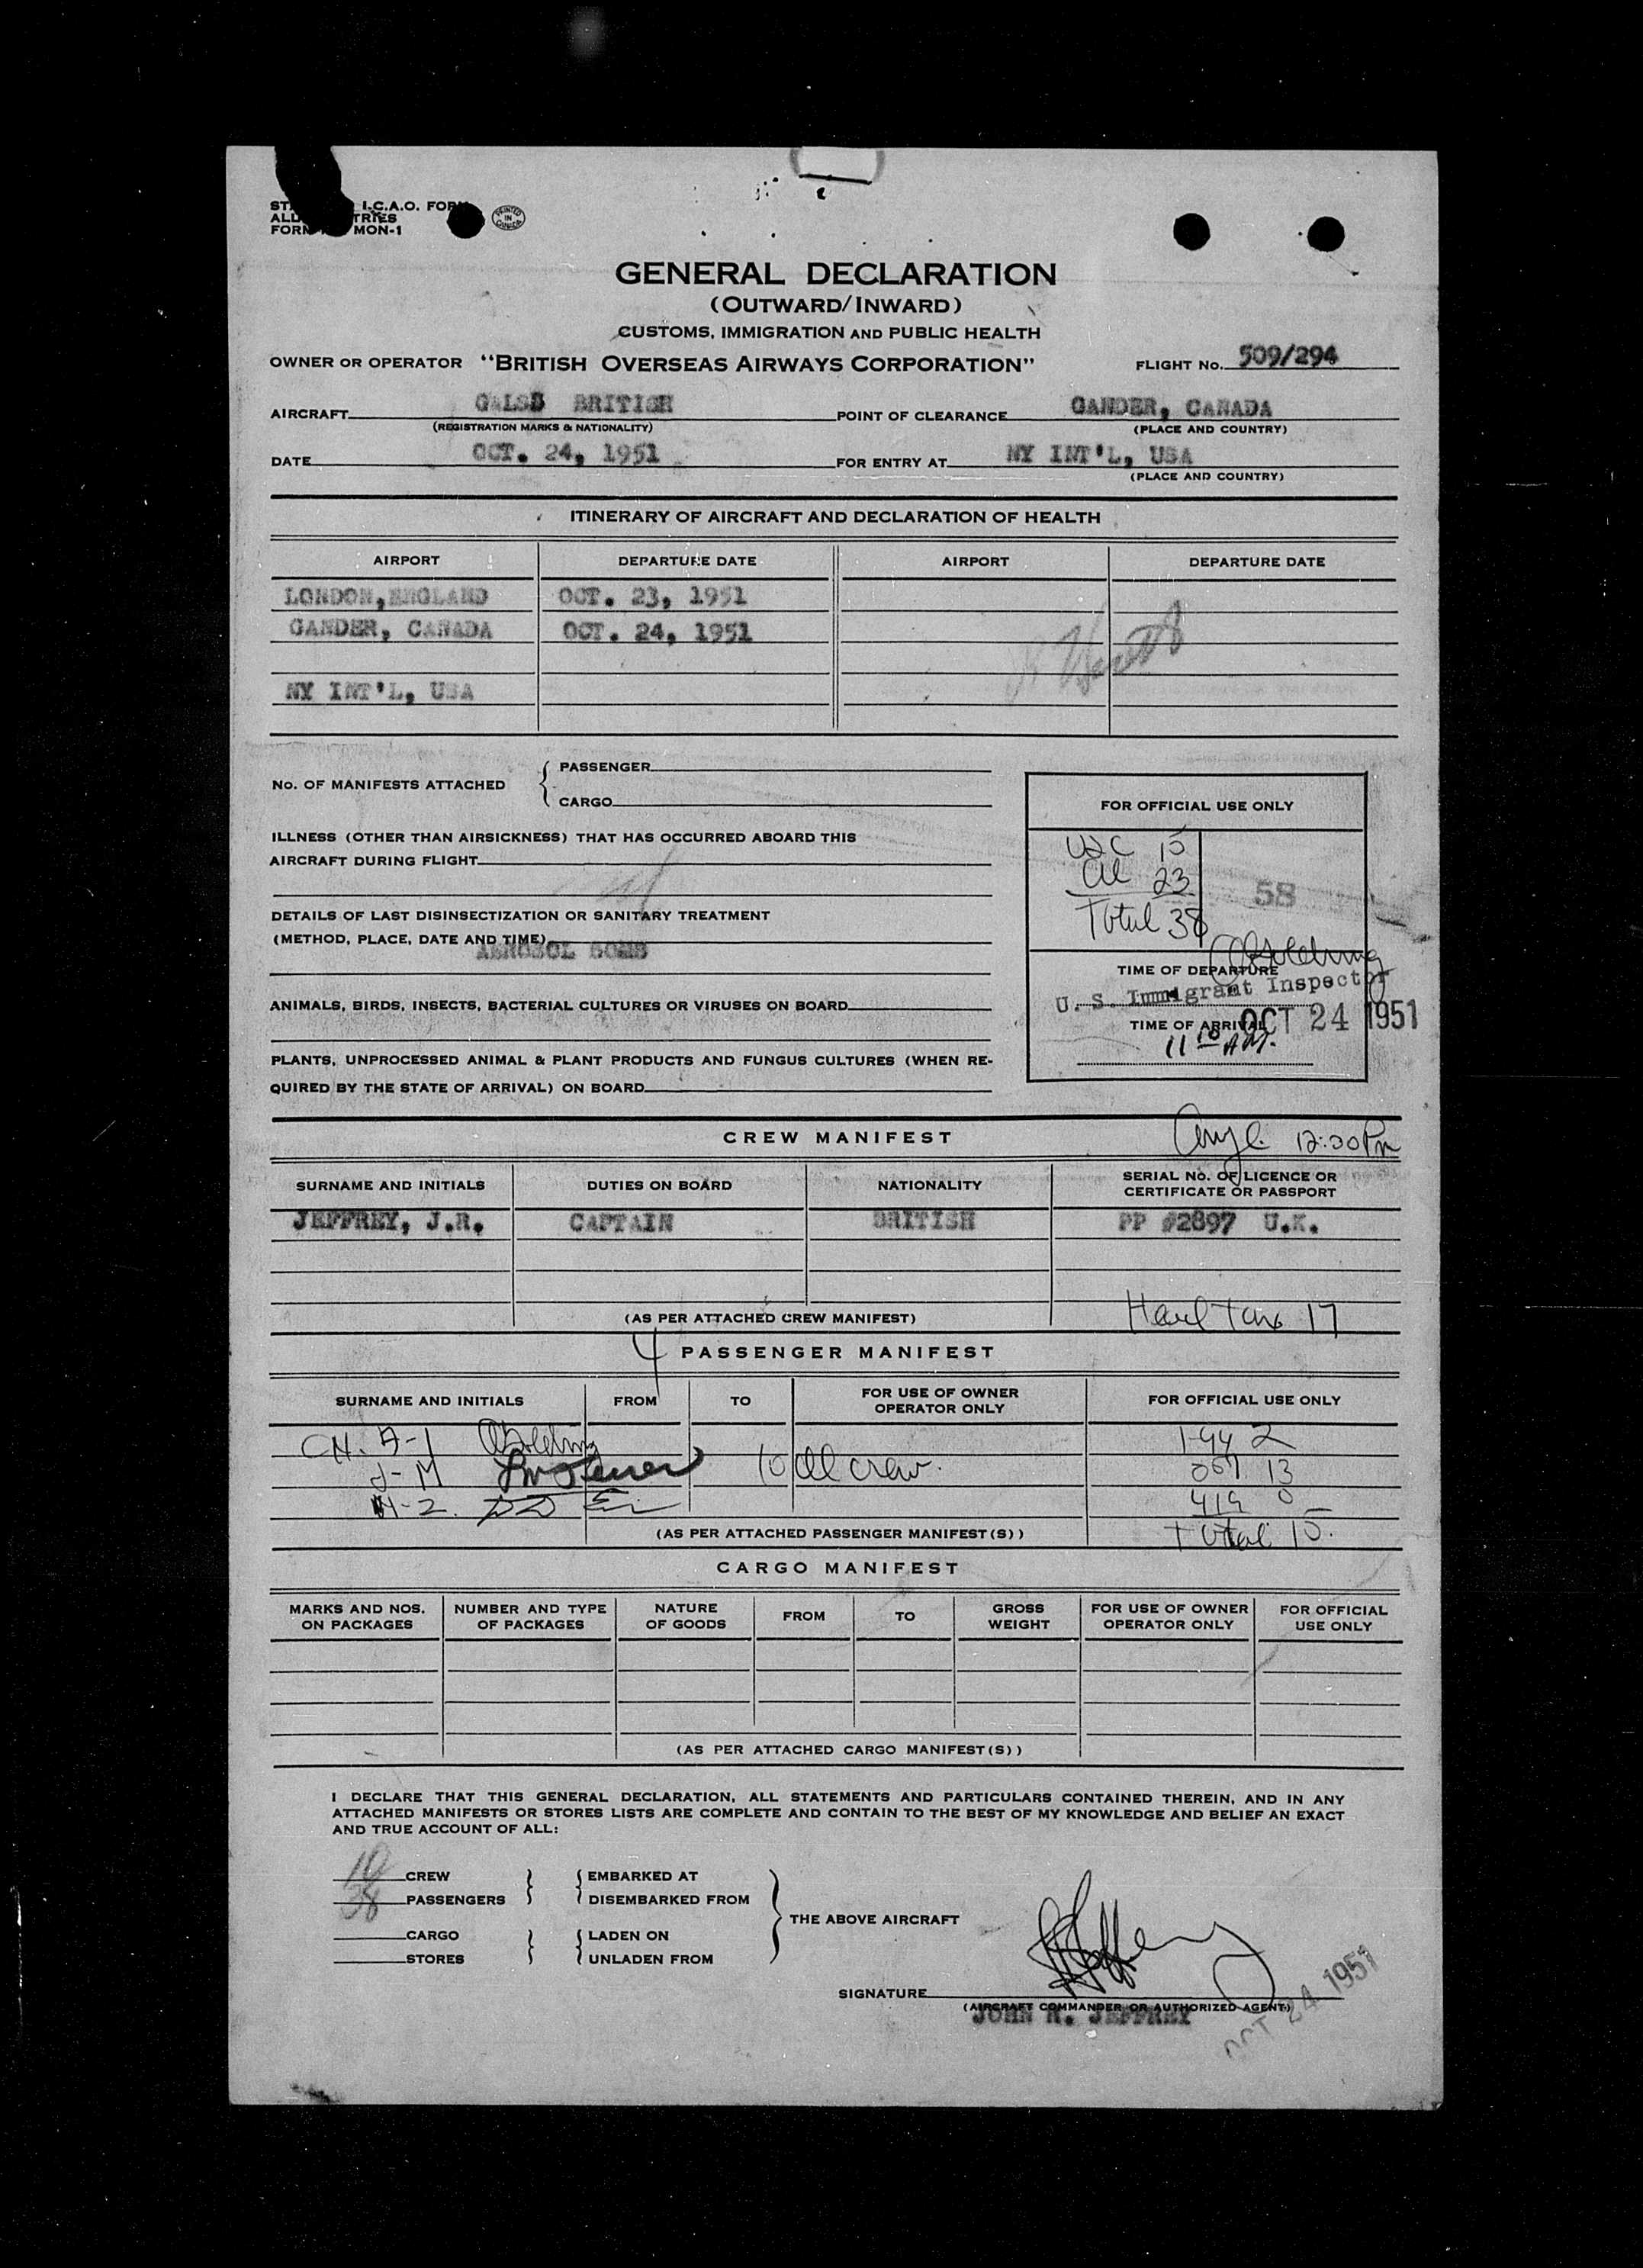 I.C.A.O. FORM
MON-1
PRINTED IN CANADA
GENERAL DECLARATION
(OUTWARD/INWARD)
CUSTOMS, IMMIGRATION AND PUBLIC HEALTH
OWNER OR OPERATOR "BRITISH OVERSEAS AIRWAYS CORPORATION" FLIGHT No. 509/294
AIRCRAFT BRITISH POINT OF CLEARANCE GANDER, CANADA
(REGISTRATION MARKS & NATIONALITY) (PLACE AND COUNTRY)
DATE OCT. 24, 1951 FOR ENTRY AT NY INT'L, USA
(PLACE AND COUNTRY)
ITINERARY OF AIRCRAFT AND DECLARATION OF HEALTH
AIRPORT DEPARTURE DATE AIRPORT DEPARTURE DATE
LONDON, ENGLAND OCT. 23, 1951
GANDER, CANADA OCT. 24, 1951
NY INT'L, USA
No. OF MANIFESTS ATTACHED { PASSENGER
CARGO
FOR OFFICIAL USE ONLY
ILLNESS (OTHER THAN AIRSICKNESS) THAT HAS OCCURRED ABOARD THIS
AIRCRAFT DURING FLIGHT
USC 15
al 23
Total 38
58
DETAILS OF LAST DISINSECTIZATION OR SANITARY TREATMENT
(METHOD, PLACE, DATE AND TIME)
AEROSOL BOMB
TIME OF DEPARTURE
U. S. Immigrant Inspector
ANIMALS, BIRDS, INSECTS, BACTERIAL CULTURES OR VIRUSES ON BOARD
TIME OF ARRIVAL OCT 24 1951
11 10 AM.
PLANTS, UNPROCESSED ANIMAL & PLANT PRODUCTS AND FUNGUS CULTURES (WHEN RE-
QUIRED BY THE STATE OF ARRIVAL) ON BOARD
CREW MANIFEST 12:00 Pm
SURNAME AND INITIALS DUTIES ON BOARD NATIONALITY SERIAL No. OF LICENCE OR
CERTIFICATE OR PASSPORT
JEFFREY, J.R. CAPTAIN BRITISH PP #2897 U.K.
(AS PER ATTACHED CREW MANIFEST) Head Tax 17
4 PASSENGER MANIFEST
SURNAME AND INITIALS FROM TO FOR USE OF OWNER
OPERATOR ONLY FOR OFFICIAL USE ONLY
10 al crew. 2
13
0
(AS PER ATTACHED PASSENGER MANIFEST(S)) Total 15.
CARGO MANIFEST
MARKS AND NOS.
ON PACKAGES NUMBER AND TYPE
OF PACKAGES NATURE
OF GOODS FROM TO GROSS
WEIGHT FOR USE OF OWNER
OPERATOR ONLY FOR OFFICIAL
USE ONLY
(AS PER ATTACHED CARGO MANIFEST(S))
I DECLARE THAT THIS GENERAL DECLARATION, ALL STATEMENTS AND PARTICULARS CONTAINED THEREIN, AND IN ANY
ATTACHED MANIFESTS OR STORES LISTS ARE COMPLETE AND CONTAIN TO THE BEST OF MY KNOWLEDGE AND BELIEF AN EXACT
AND TRUE ACCOUNT OF ALL:
10 CREW EMBARKED AT
38 PASSENGERS DISEMBARKED FROM
THE ABOVE AIRCRAFT
CARGO LADEN ON
STORES UNLADEN FROM
SIGNATURE
(AIRCRAFT COMMANDER OR AUTHORIZED AGENT)
JOHN R. JEFFREY
OCT 24 1951